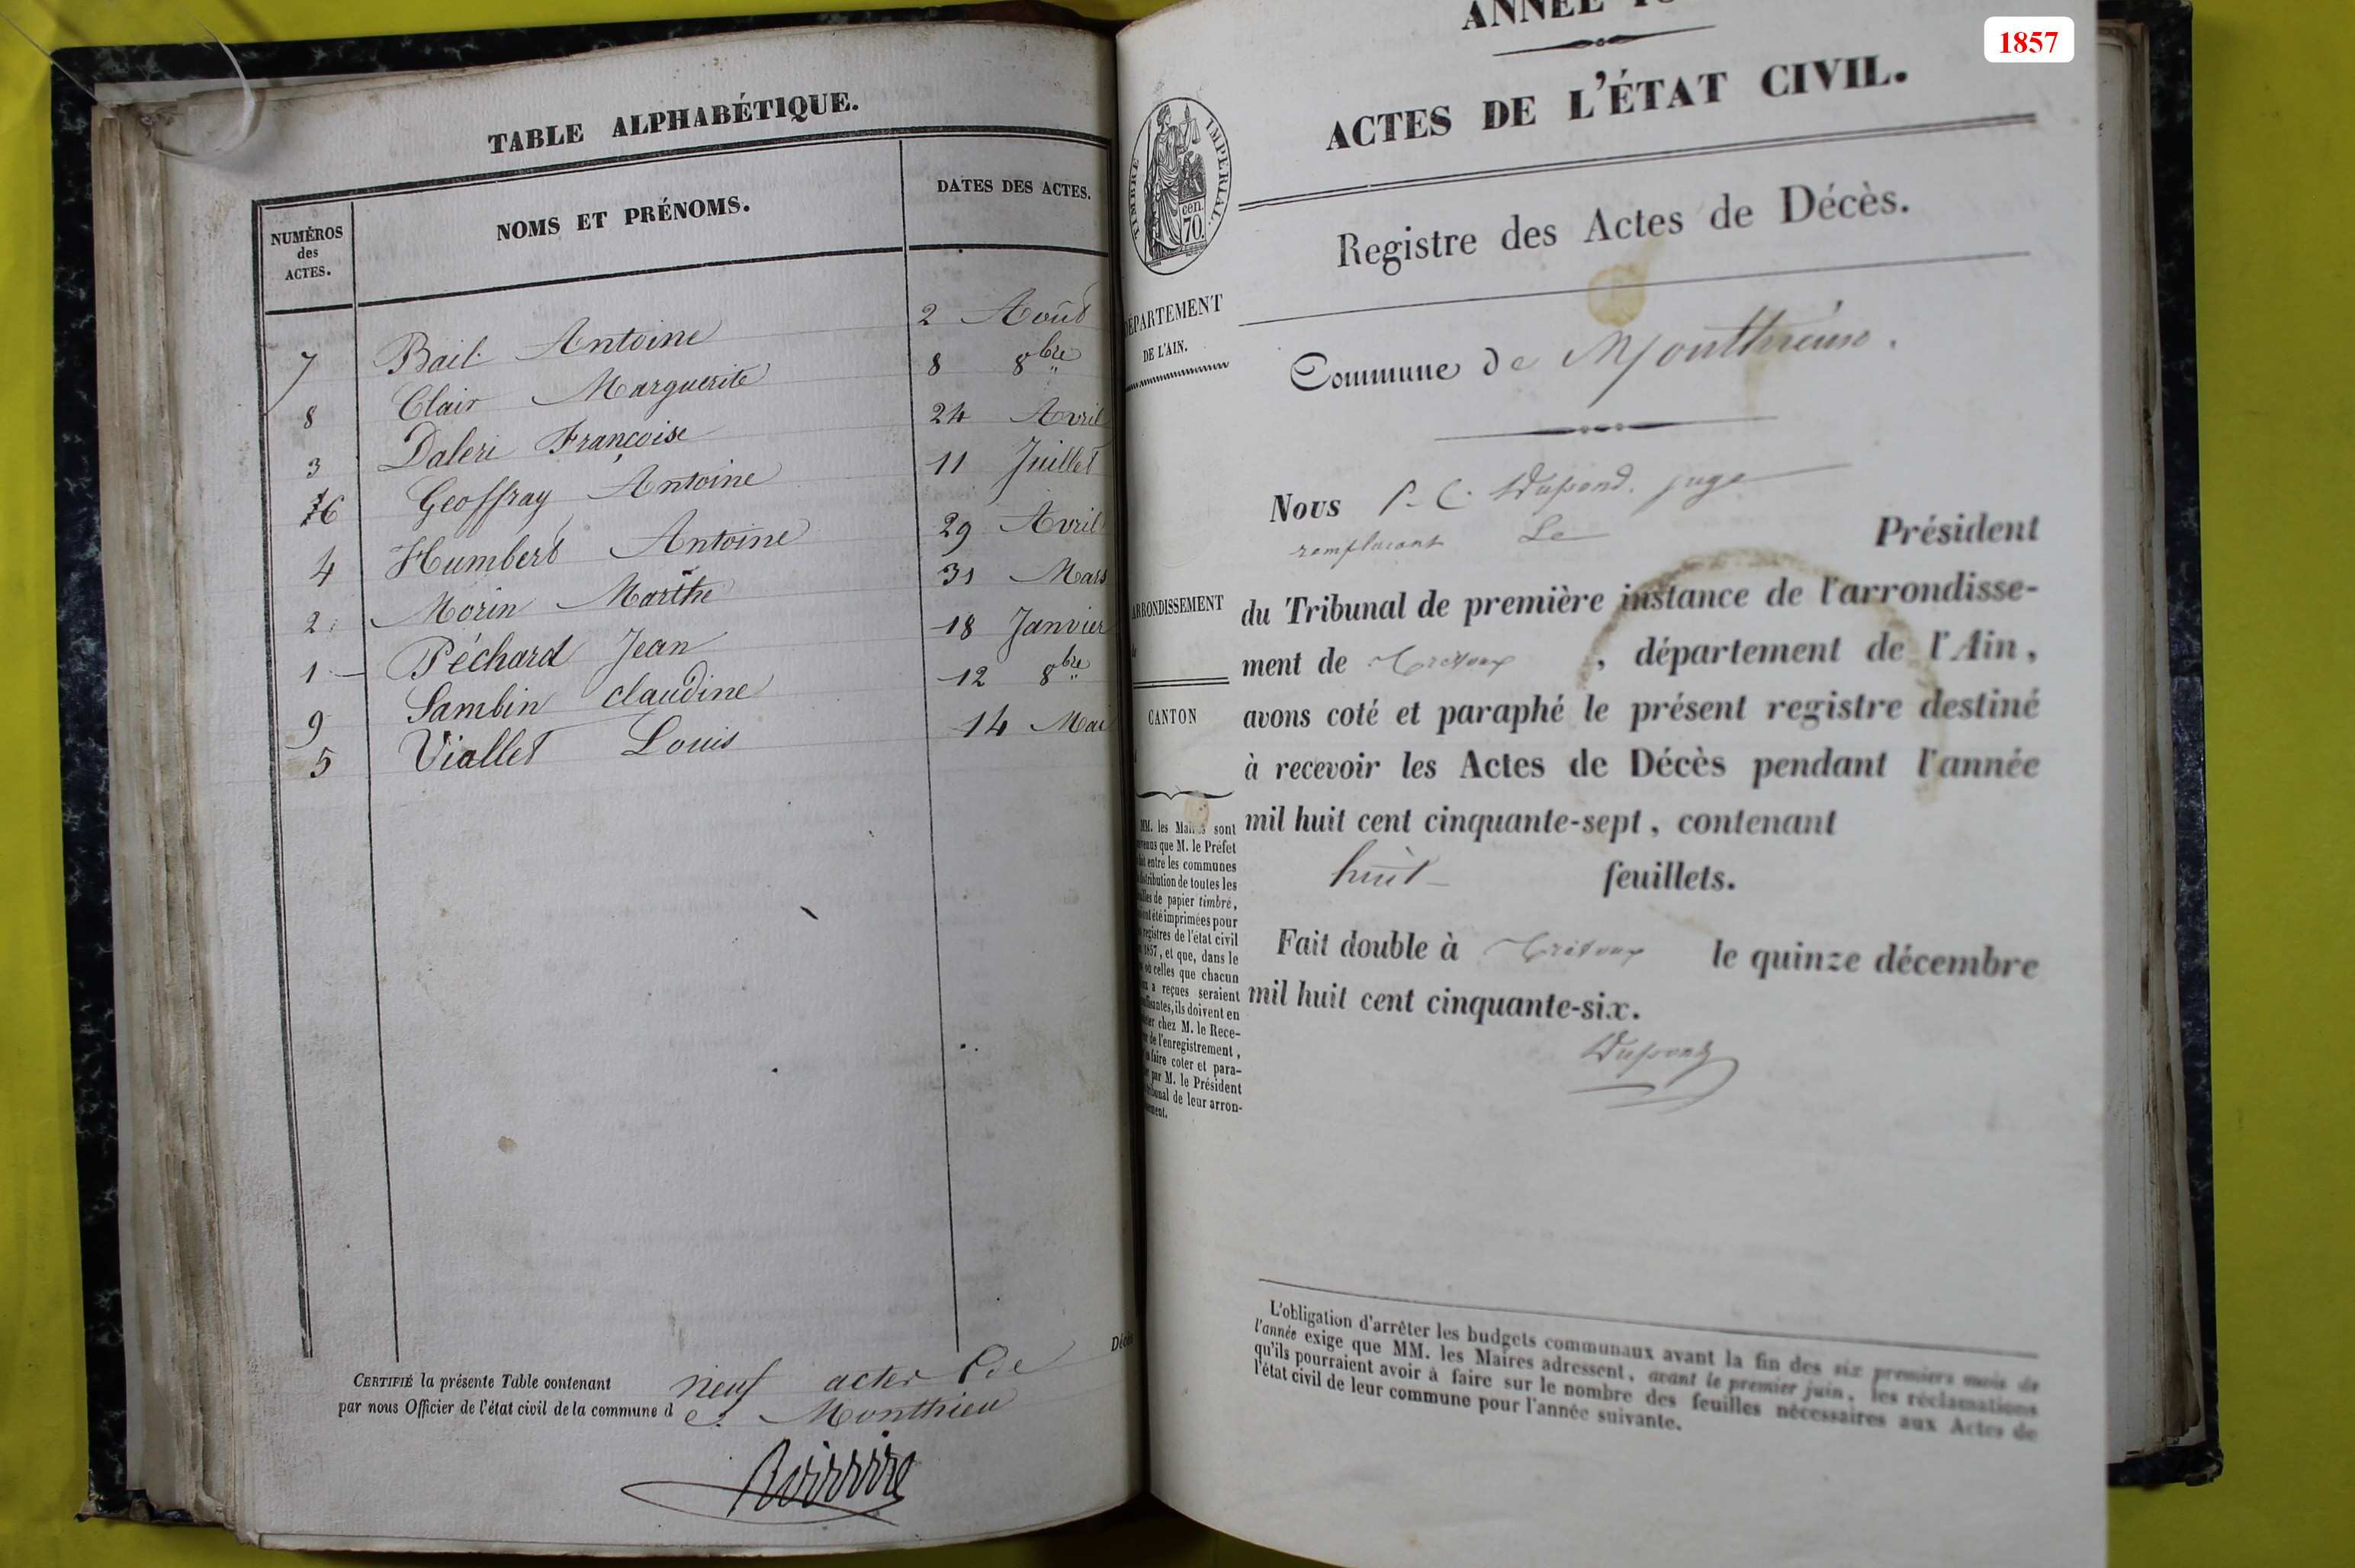 TABLE ALPHABÉTIQUE.
NUMÉROS
des
ACTES.
NOMS ET PRÉNOMS.
DATES DES ACTES.
7 Bail Antoine 2 Août
8 Clair Marguerite 8 8bre
3 Daleri Françoise 24 Avril
6 Geoffray Antoine 11 Juillet
4 Humbert Antoine 29 Avril
2 Morin Marthe 31 Mars
1 Péchard Jean 18 Janvier
9 Sambin Claudine 12 8bre
5 Viallet Louis 14 Mai
CERTIFIÉ la présente Table contenant neuf actes de
par nous Officier de l'état civil de la commune d e Monthieu
1857
ANNÉE
ACTES DE L'ÉTAT CIVIL.
TIMBRE IMPÉRIAL
cen.
70.
Registre des Actes de Décès.
DÉPARTEMENT
DE L'AIN.
Commune de Monthieux.
Nous P. C. Dupond, juge
remplaçant Le Président
ARRONDISSEMENT
du Tribunal de première instance de l'arrondisse-
ment de Trévoux, département de l'Ain,
CANTON
avons coté et paraphé le présent registre destiné
à recevoir les Actes de Décès pendant l'année
mil huit cent cinquante-sept, contenant
huit feuillets.
Fait double à Trévoux le quinze décembre
mil huit cent cinquante-six.
Dupond
MM. les Maires sont
que M. le Préfet
entre les communes
distribution de toutes les
de papier timbré,
été imprimées pour
registres de l'état civil
1857, et que, dans le
où celles que chacun
a reçues seraient
ils doivent en
chez M. le Rece-
de l'enregistrement,
faire coter et para-
par M. le Président
de leur arron-
L'obligation d'arrêter les budgets communaux avant la fin des six premiers mois de
l'année exige que MM. les Maires adressent, avant le premier juin, les réclamations
qu'ils pourraient avoir à faire sur le nombre des feuilles nécessaires aux Actes de
l'état civil de leur commune pour l'année suivante.